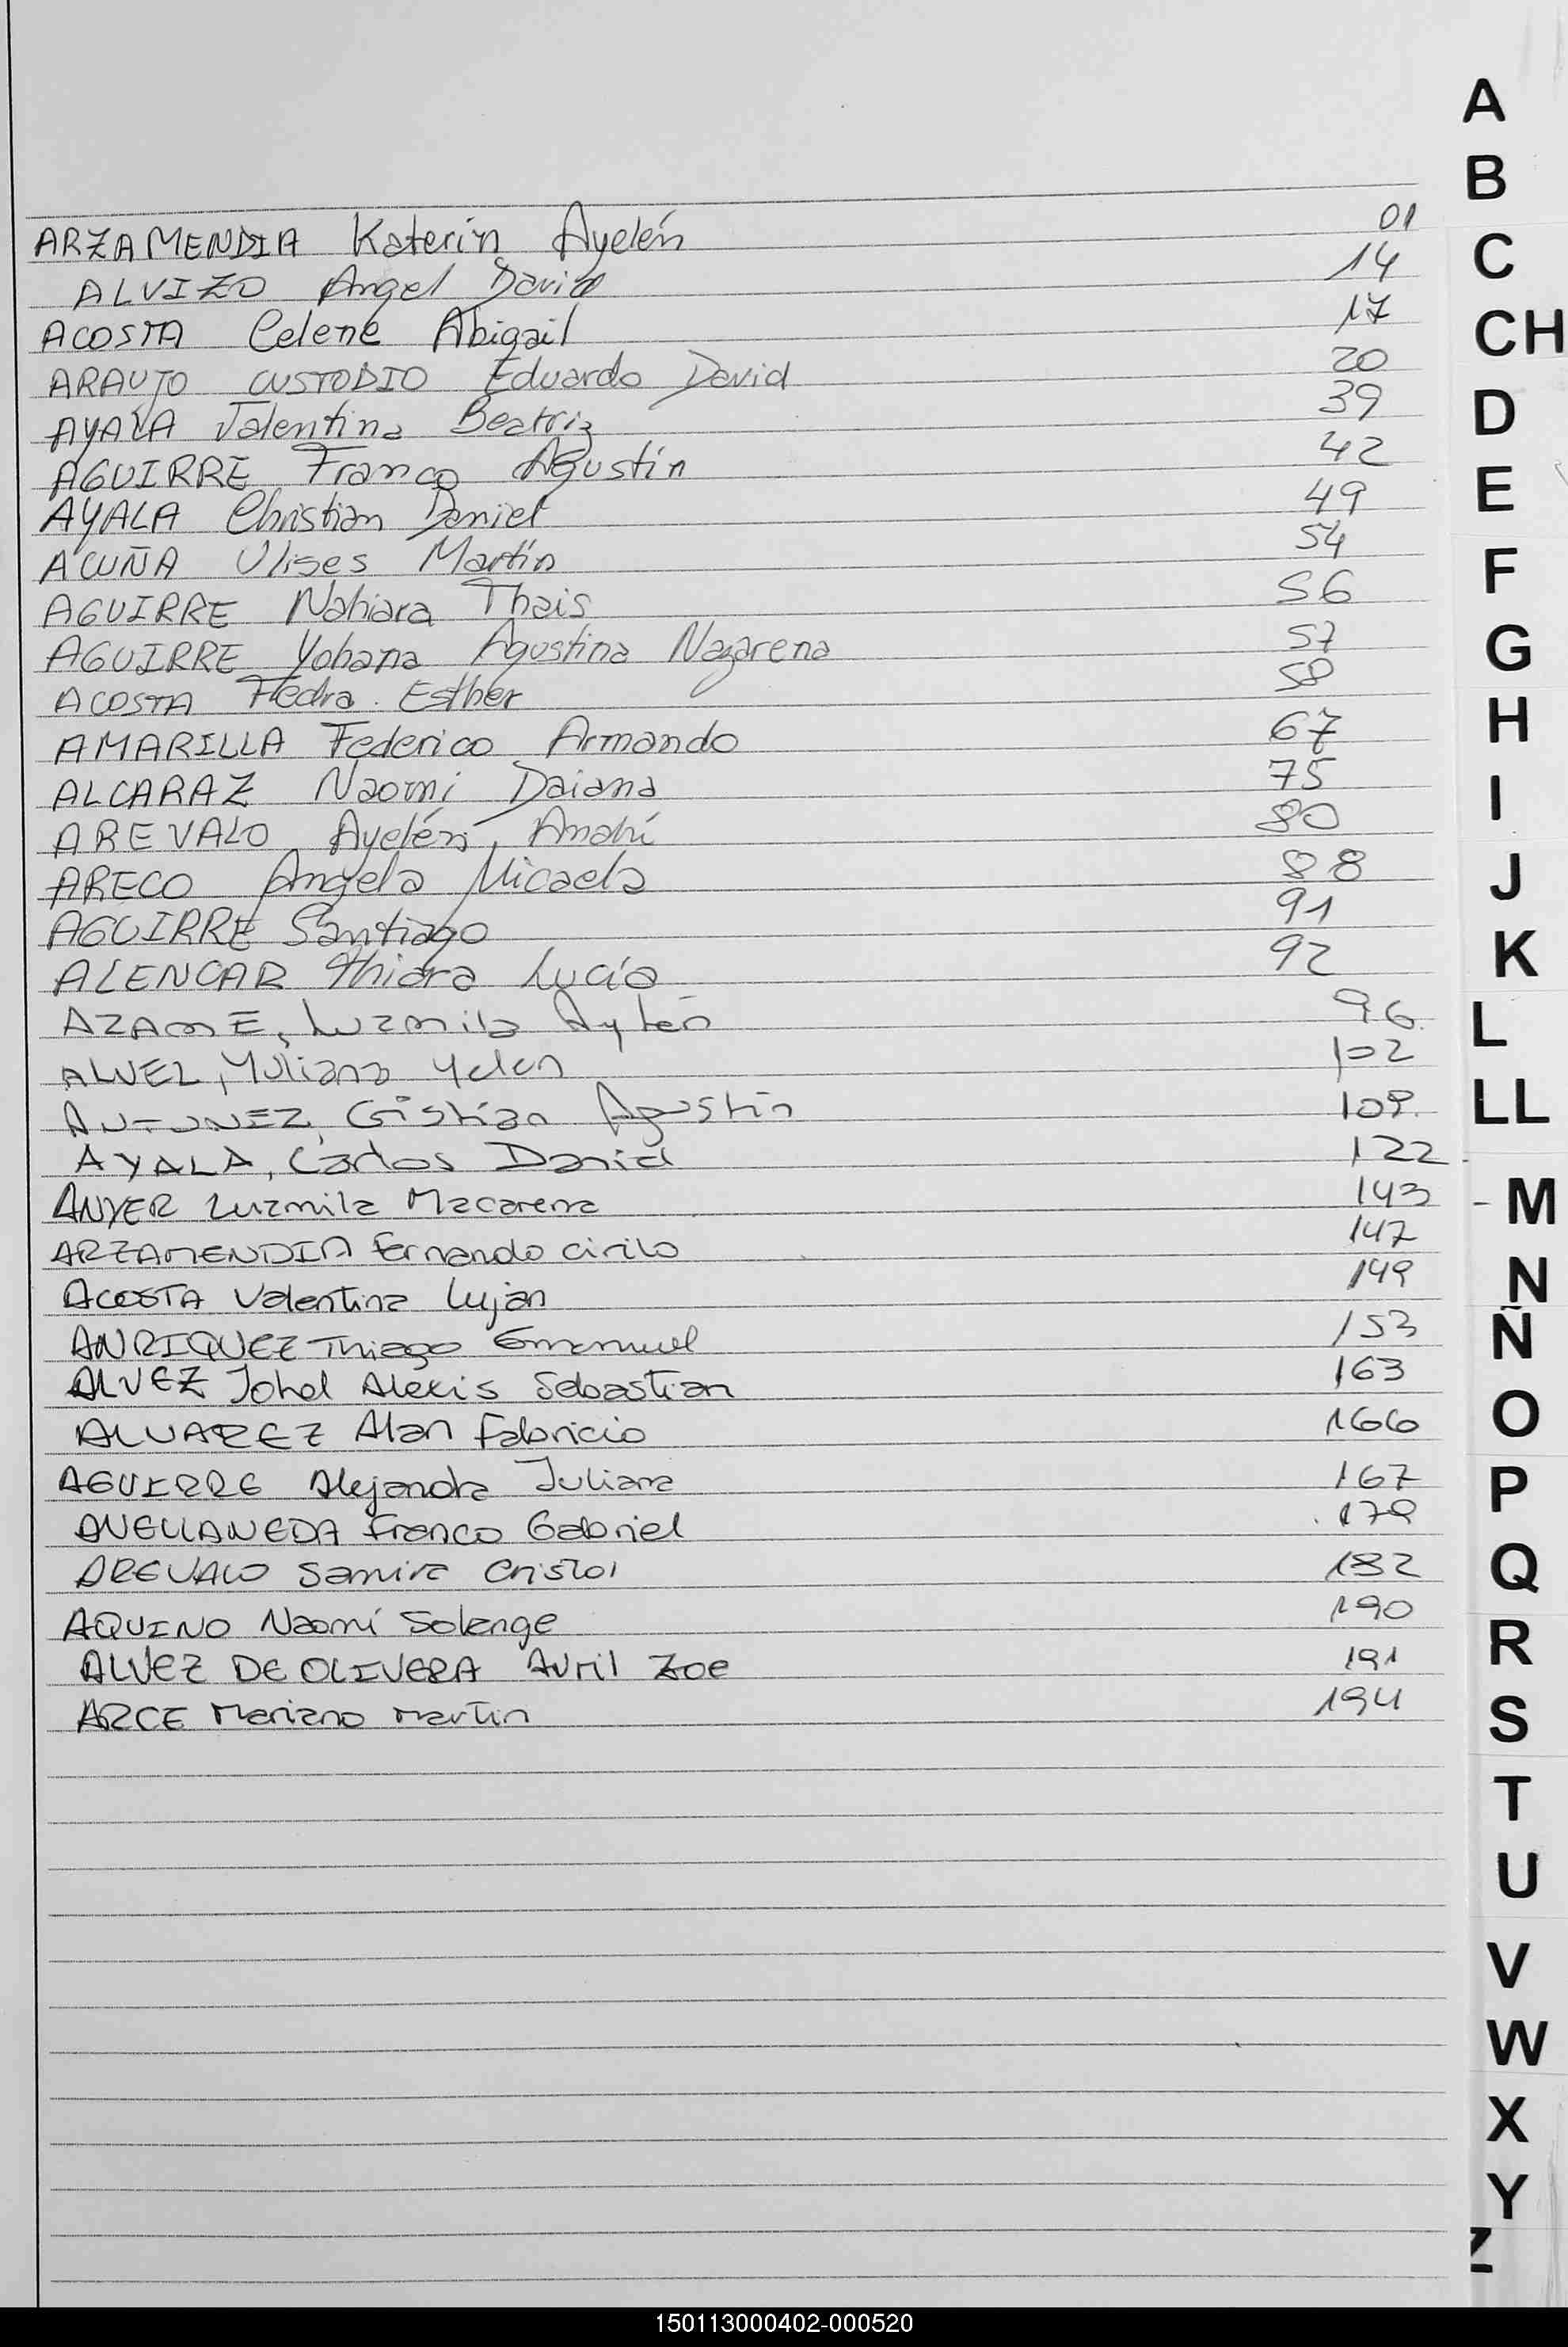 ARZAMENDIA Katerin Ayelén 01
ALVIZO Angel David 14
ACOSTA Celene Abigail 17
ARAUJO CUSTODIO Eduardo David 20
AYALA Valentina Beatriz 39
AGUIRRE Franco Agustín 42
AYALA Christian Daniel 49
ACUÑA Ulises Martín 54
AGUIRRE Nahiara Thais 56
AGUIRRE Yohana Agustina Nazarena 57
ACOSTA Fledra Esther 58
AMARILLA Federico Armando 67
ALCARAZ Naomi Daiana 75
AREVALO Ayelén Anahí 80
ARECO Angela Micaela 88
AGUIRRE Santiago 91
ALENCAR Thiara Lucía 92
AZAME, Luzmila Aylen 96
ALVEZ, Yuliana Yelen 102
ANTUNEZ, Cristian Agustin 109.
AYALA, Carlos Daniel 122
ANYER Luzmila Macarena 143
ARZAMENDIA Fernando cirilo 147
ACOSTA Valentina Luján 149
ANRIQUEZ Thiago Emanuel 153
ALVEZ Johel Alexis Sebastian 163
ALVAREZ Alan Fabricio 166
AGUIRRE Alejandra Juliana 167
AVELLANEDA Franco Gabriel 179
AREVALO Samira 182
AQUINO Naomí Solange 190
ALVEZ DE OLIVERA Avril Zoe 191
ARCE Mariano Martin 194
A
B
C
CH
D
E
F
G
H
I
J
K
L
LL
M
N
Ñ
O
P
Q
R
S
T
U
V
W
X
Y
Z
150113000402-000520